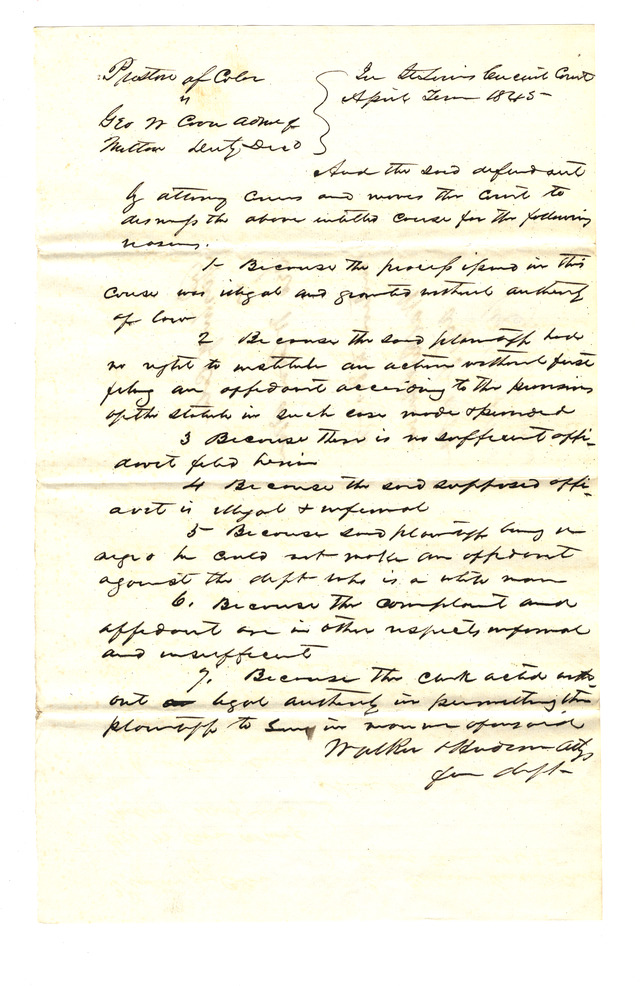 Preston of Color
"
Geo W Coon admr of
Milton Duty Decd
In St Louis Circuit Court
April Term 1845
And the said defendant
by attorney comes and moves the Court to
dismiss the above intitled cause for the following
reasons.
1 Because the process issued in this
cause was illegal and granted without authority
of law
2 Because the said plaintiff had
no right to institute an action without first
filing an affidavit according to the provisions
of the statute in such case made & provided
3 Because there is no sufficient affi-
davit filed herein
4 Because the said supposed affi-
avit is illegal & informal
5 Because said plaintiff being a
negro he could not make an affidavit
against the deft who is a white man
6. Because the complaint and
affidavit are in other respects informal
and insufficient
7. Because the clerk acted with
out legal authority in permitting the
plaintiff to sue in manner aforesaid
Walker & Hudson Attys
for deft